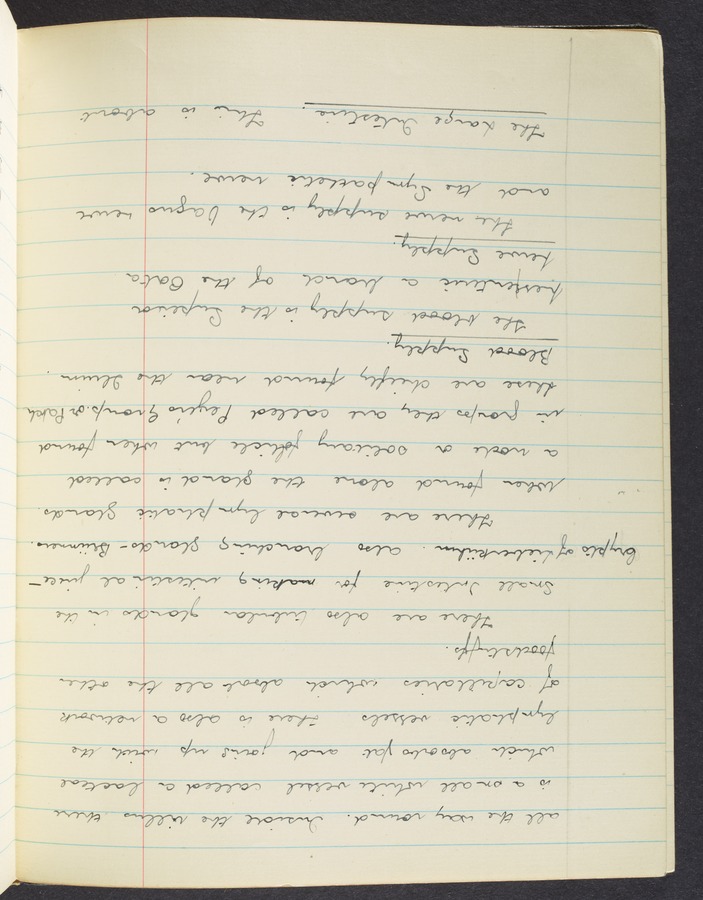 all the way round. Inside the villus there
is a small white vessel called a lacteal
which absorbs fat and joins up with the
lymphatic vessels There is also a network
of capillaries which absorb all the other
foodstuffs.
There are also tubular glands in the
Small Intestine for making intestinal juice -
Crypts of Lieberkühn. also branching glands - Brünners.
There are several lymphatic glands.
When found alone the gland is called
a node or solitary follicle but when found
in groups they are called Peyers Groups. or Patch
these are cheifly found near the Ileum.
Blood Supply.
the blood supply is the Superior
a branch of the
Nerve Supply.
the nerve supply is the Vagus nerve
and the Sympathetic nerve.
The Large Intestine. This is about